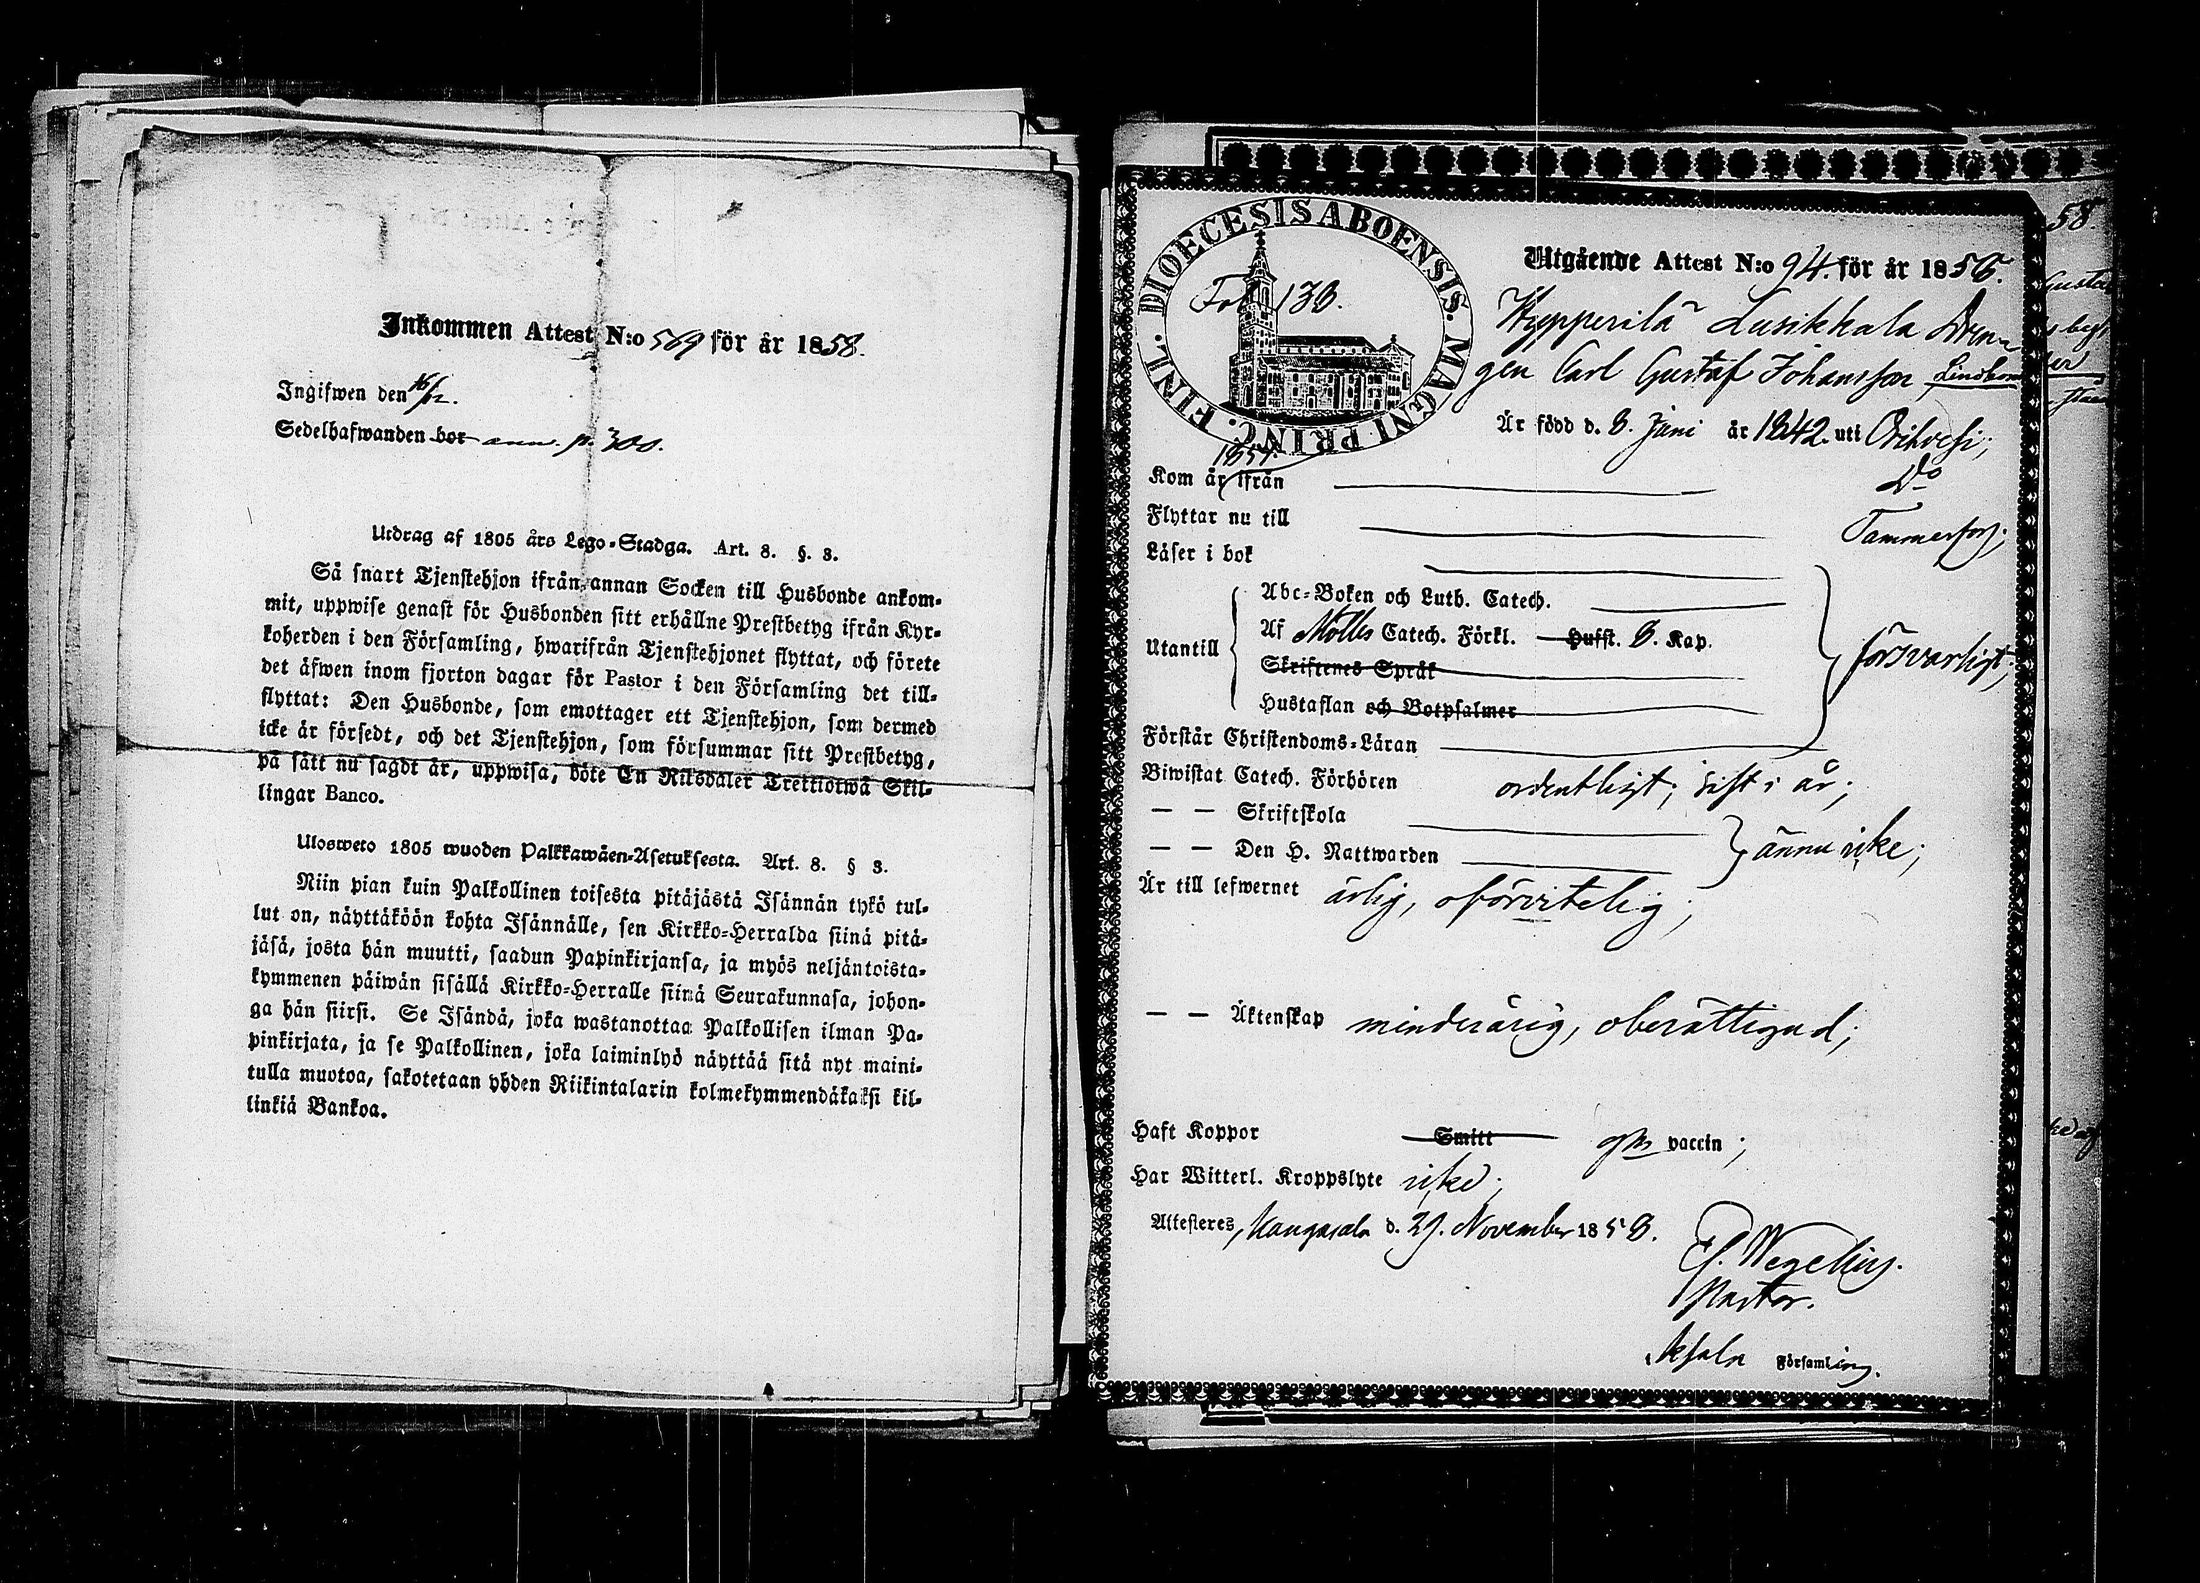 Inkommen Attest N:o 569 för år 1858.
Ingifwen den 16/12.
Sedelhafwanden bor ann. p. 300.
Utdrag af 1805 års Lego-Stadga. Art. 8. §. 3.
Så snart Tjenstehjon ifrån annan Socken till Husbonde ankom-
mit, uppwise genast för Husbonden sitt erhållne Prestbetyg ifrån Kyr-
koherden i den Församling, hwarifrån Tjenstehjonet flyttat, och förete
det äfwen inom fjorton dagar för Pastor i den Församling det till-
flyttat: Den Husbonde, som emottager ett Tjenstehjon, som dermed
icke är försedt, och det Tjenstehjon, som försummar sitt Prestbetyg,
på sätt nu sagdt är, uppwisa, böte En Riksdaler Trettiotwå Skil-
lingar Banco.
Ulosweto 1805 wuoden Palkkawäen-Asetuksesta. Art. 8. § 3.
Niin pian kuin Palkollinen toisesta pitäjästä Isännän tykö tul-
lut on, näyttäköön kohta Isännälle, sen Kirkko-Herralda siinä pitä-
jäsä, josta hän muutti, saadun Papinkirjansa, ja myös neljäntoista-
kymmenen päiwän sisällä Kirkko-Herralle siinä Seurakunnasa, johon-
ga hän siirsi. Se Isändä, joka wastanottaa Palkollisen ilman Pa-
pinkirjata, ja se Palkollinen, joka laiminlyö näyttää sitä nyt maini-
tulla muotoa, sakotetaan yhden Riikintalarin kolmekymmendäkaksi kil-
linkiä Bankoa.
DIOECESIS ABOENSIS. MAGNI PRINC. FINL.
Fol. 133.
Utgående Attest N:o 94. för år 1858.
Kypperilä Lusikkala Dren-
gen Carl Gustaf Johansson
Är född d. 8. Juni år 1842. uti Orihvesi;
Kom år 1857 ifrån Do
Flyttar nu till Tammerfors;
Läser i bok
Utantill
Abc-Boken och Luth. Catech.
Af Möllers Catech. Förkl. Husst. 8. Kap.
Skriftenes Språk
Hustaflan och Botpsalmer
försvarligt;
Förstår Christendoms-Läran
Biwistat Catech. Förhören ordentligt; sist i år;
— — Skriftskola
— — Den H. Nattwarden
ännu icke;
Är till lefwernet ärlig, oförvitelig;
— — Äktenskap minderårig, oberättigad;
Haft Koppor Smitt vaccin;
Har Witterl. Kroppslyte icke;
Attesteres, Kangasala d. 29. November 1858.
Wegelius.
Pastor.
Ksala Församling.